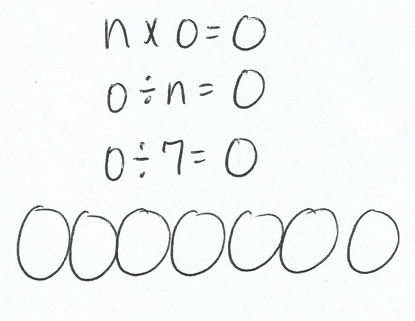 n x 0 = 0
0 ÷ n = 0
0 ÷ 7 = 0